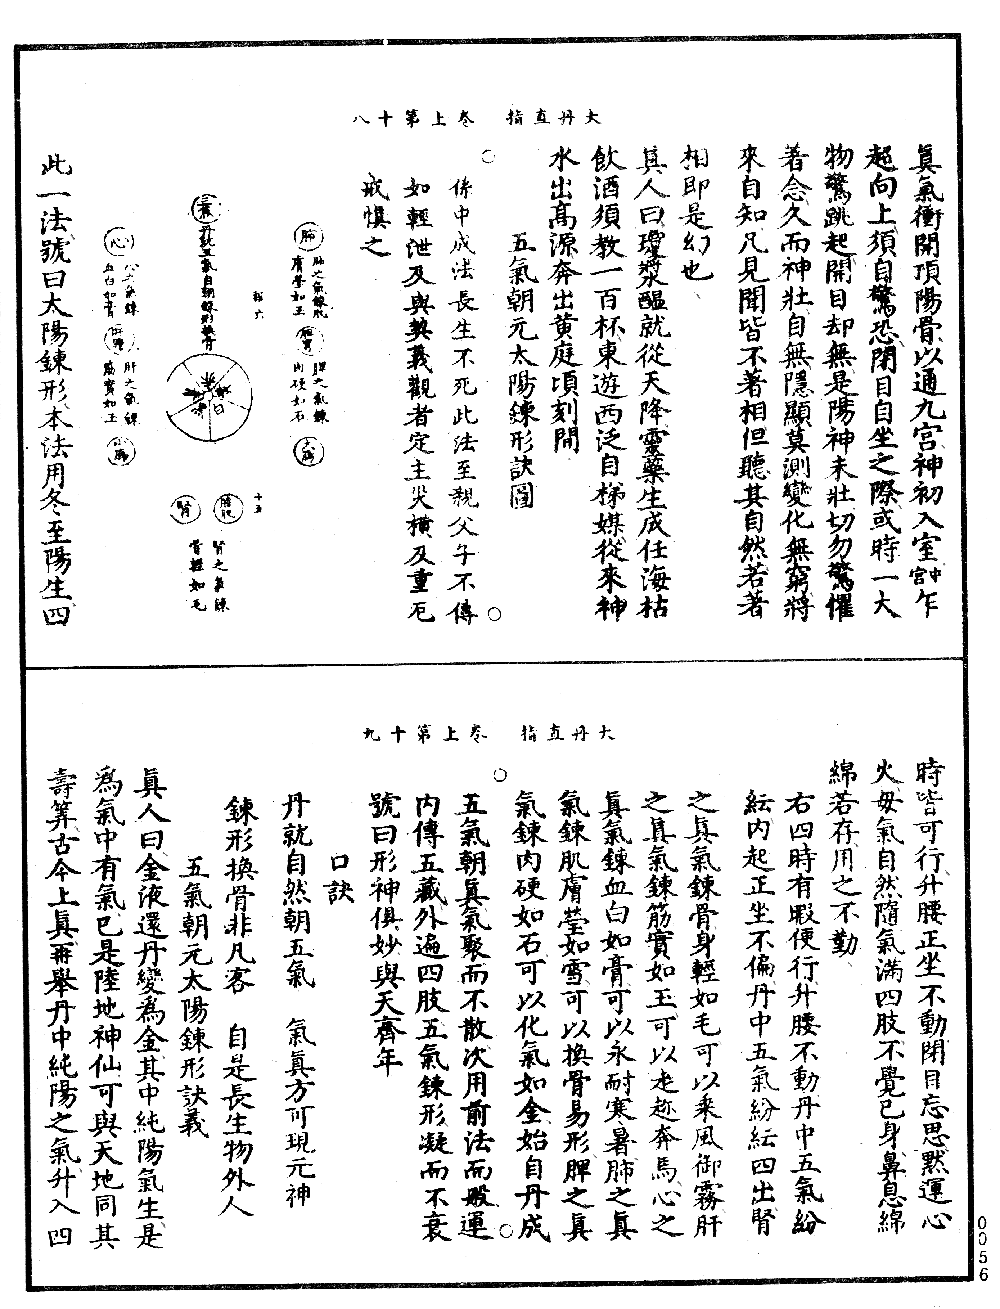 大丹直指　卷上第十八
真氣衝開頂陽骨以通九宫神初入室中宮乍
超向上須自驚恐閉目自坐之際或時一大
物驚跳起開目却無是陽神未壯切勿驚懼
著念久而神壯自無隱顯莫測變化無窮將
來自知凡見聞皆不著相但聽其自然若著
相即是幻也
真人曰瓊漿醞就從天降靈藥生成任海枯
飲酒須教一百杯東遊西泛自梯媒從來神
水出高源奔出黄庭頃刻開
五氣朝元太陽鍊形訣圖
係中成法長生不死此法至親父子不傳
如輕泄及與無義觀者定主災横及重厄
戒慎之
肺
肺之氣鍊肌
膚瑩如玉
脾之氣鍊
肉硬如石
日
腎
膀胱
十五
腎之氣鍊
骨輕如毛
心
血白如膏
肝之氣鍊
筋實如玉
膽
此一法號曰太陽鍊形本法用冬至陽生四
大丹直指　卷上第十九
時皆可行升腰正坐不動閉目忘思默運心
火毋氣自然隨氣滿四肢不覺己身鼻息綿
綿若存用之不勤
右四時有暇便行升腰不動丹中五氣紛
紜内起正坐不偏丹中五氣紛紜四出腎
之真氣鍊骨身輕如毛可以乘風御霧肝
之真氣鍊筋實如玉可以走趂奔馬心之
真氣鍊血白如膏可以永耐寒暑肺之真
氣鍊肌膚瑩如雪可以換骨易形脾之真
氣鍊肉硬如石可以化氣如金始自丹成
五氣朝真氣聚而不散次用前法而般運
内傳五藏外遍四肢五氣鍊形凝而不衰
號曰形神俱妙與天齊年
口訣
丹就自然朝五氣　氣真方可現元神
鍊形換骨非凡客　自是長生物外人
五氣朝元太陽鍊形訣義
真人曰金液還丹變爲金其中純陽氣生是
爲氣中有氣已是陸地神仙可與天地同其
壽筭古今上真再舉丹中純陽之氣升入四
0056